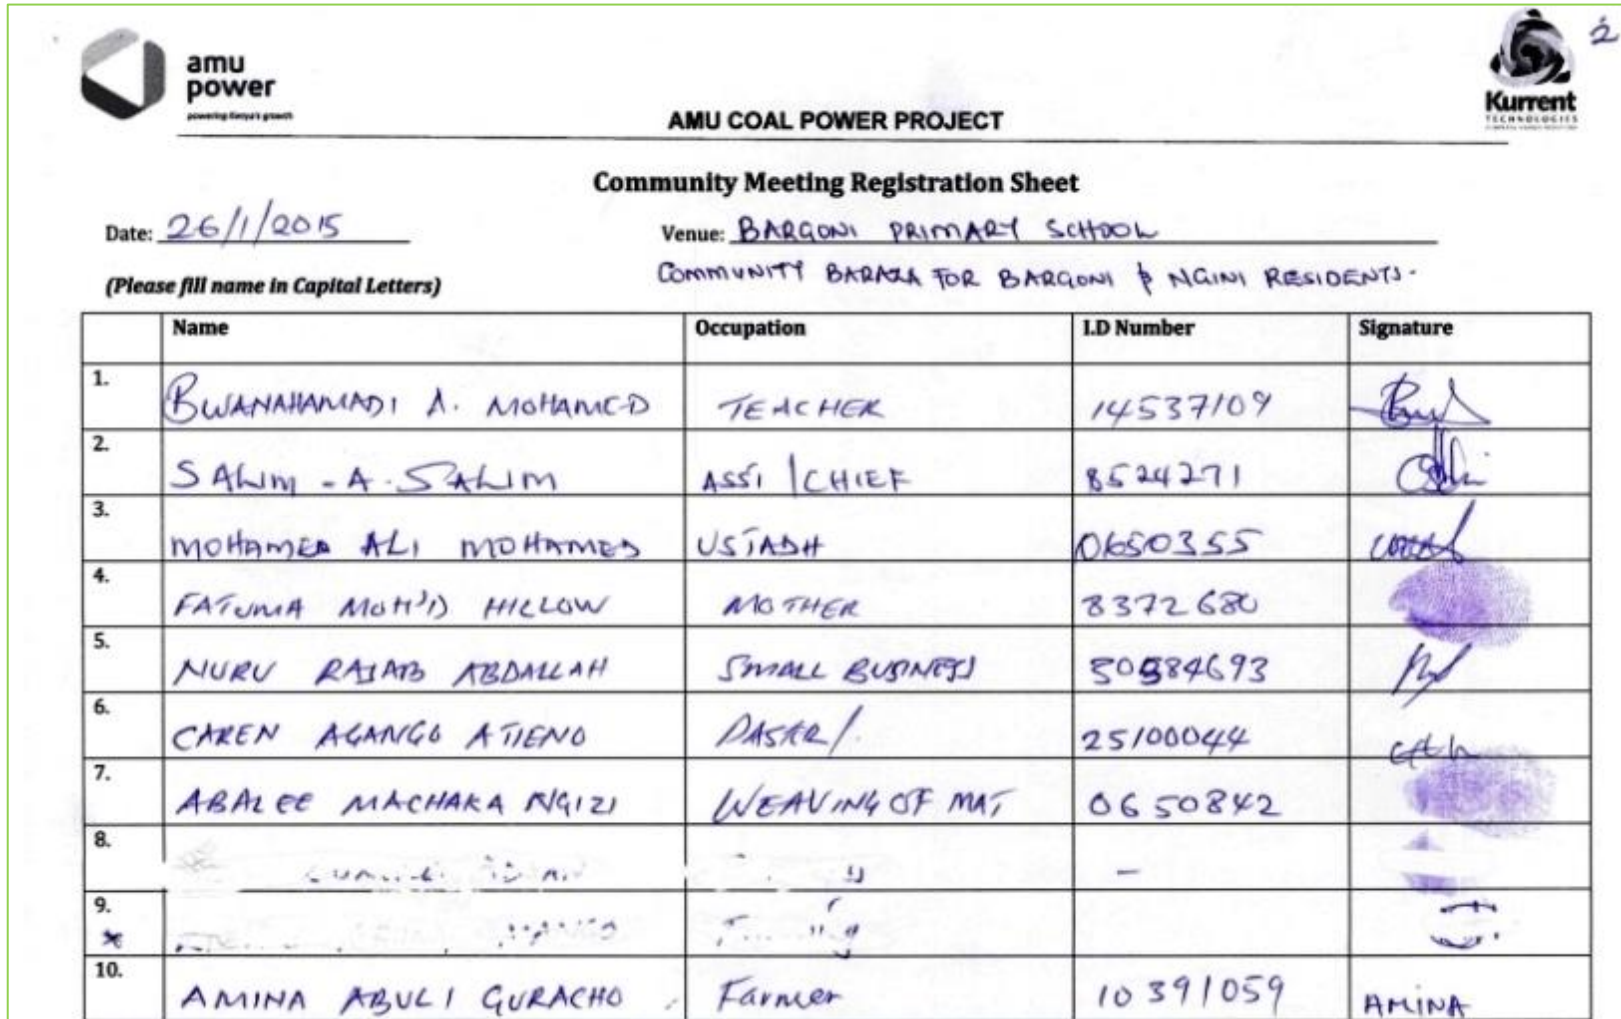 2
amu
power
powering Kenya's growth
Kurrent
TECHNOLOGIES
AMU COAL POWER PROJECT
Community Meeting Registration Sheet
Date: 26/1/2015 Venue: BARGONI PRIMARY SCHOOL
(Please fill name in Capital Letters) COMMUNITY BARAZA FOR BARGONI & NGINI RESIDENTS.
Name Occupation I.D Number Signature
1. BWANAHAMADI A. MOHAMED TEACHER 14537109
2. SALIM - A. SALIM ASSI / CHIEF 8524271
3. MOHAMED ALI MOHAMED USTADH 0650355
4. FATUMA MOH'D HILLOW MOTHER 8372680
5. NURU RAJAB ABDALLAH SMALL BUSINESS 30584693
6. CAREN AGANGO ATIENO 25100044
7. ABALEE MACHAKA NGIZI WEAVING OF MAT 0650842
8. -
9.
10. AMINA ABULI GURACHO Farmer 10391059 AMINA